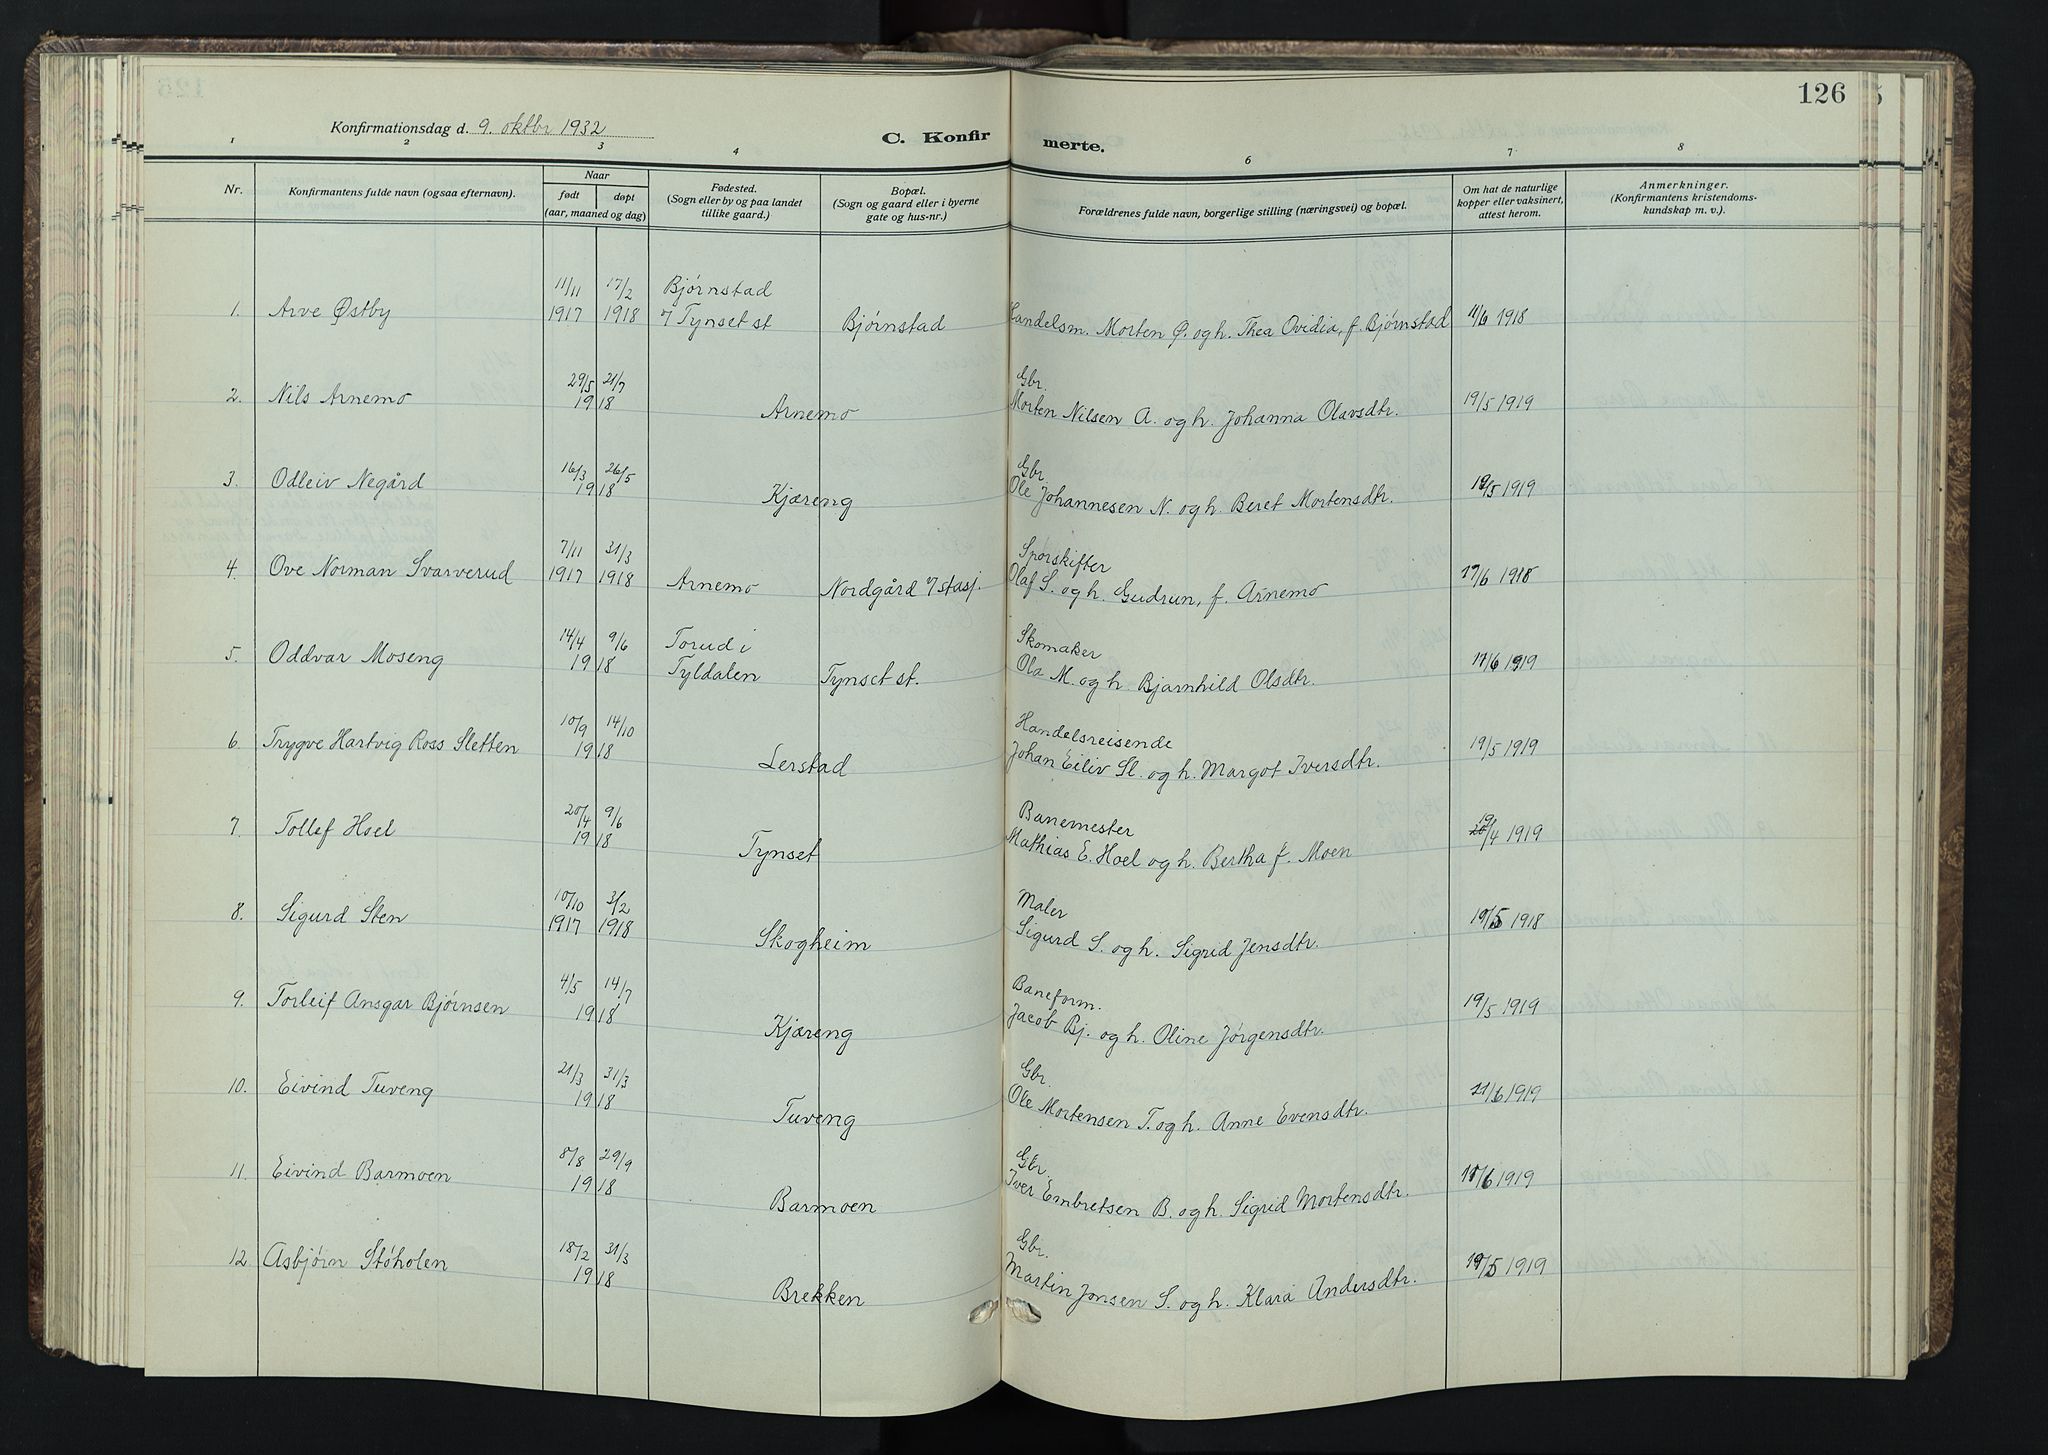 126
Konfirmationsdag d. 9. oktbr 1932
C. Konfirmerte.
1 2 3 4 6 7 8
Nr. Konfirmantens fulde navn (ogsaa efternavn). Naar født døpt (aar, maaned og dag) Fødested. (Sogn eller by og paa landet tillike gaard.) Bopæl. (Sogn og gaard eller i byerne gate og hus-nr.) Forældrenes fulde navn, borgerlige stilling (næringsvei) og bopæl. Om hat de naturlige kopper eller vaksinert, attest herom. Anmerkninger. (Konfirmantens kristendoms-kundskap m. v.).
11/11 17/2 Bjørnstad
1. Arve Østby 1917 1918 7 Tynset st Bjørnstad Handelsm. Morten Ø. og h. Thea Ovidia, f. Bjørnstad 11/6 1918
29/5 21/7 Gbr.
2. Nils Arnemo 1918 Arnemo Morten Nilsen A. og h. Johanna Olavsdtr. 19/5 1919
16/3 26/5 Gbr.
3. Odleiv Negård 1918 Kjæreng Ole Johannesen N. og h. Beret Mortensdtr. 19/5 1919
7/11 31/3 Sporskifter
4. Ove Norman Svarverud 1917 1918 Arnemo Nordgård 7 stasj. Olaf S. og h. Gudrun, f. Arnemo 17/6 1918
14/4 9/6 Torud i Skomaker
5. Oddvar Moseng 1918 Tyldalen Tynset st. Ola M. og h. Bjarnhild Olsdtr. 17/6 1919
10/9 14/10 Handelsreisende
6. Trygve Hartvig Ross Sletten 1918 Lerstad Johan Eiliv Sl. og h. Margot Iversdtr. 19/5 1919
20/4 9/6 Banemester 19
7. Tollef Hoel 1918 Tynset Mathias E. Hoel og h. Bertha f. Moen 20/4 1919
10/10 3/2 Maler
8. Sigurd Sten 1917 1918 Skogheim Sigurd S. og h. Sigrid Jensdtr. 19/5 1918
4/5 14/7 Baneform.
9. Torleif Ansgar Bjørnsen 1918 Kjæreng Jacob Bj. og h. Oline Jørgensdtr. 19/5 1919
21/3 31/3 Gbr.
10. Eivind Tuveng 1918 Tuveng Ole Mortensen T. og h. Anne Evensdtr. 11/6 1919
8/8 29/9 Gbr.
11. Eivind Barmoen 1918 Barmoen Iver Embretsen B. og h. Sigrid Mortensdtr. /6 1919
18/2 31/3 Gbr.
12 Asbjørn Støholen 1918 Brekken Martin Jonsen S. og h. Klara Andersdtr. 19/5 1919